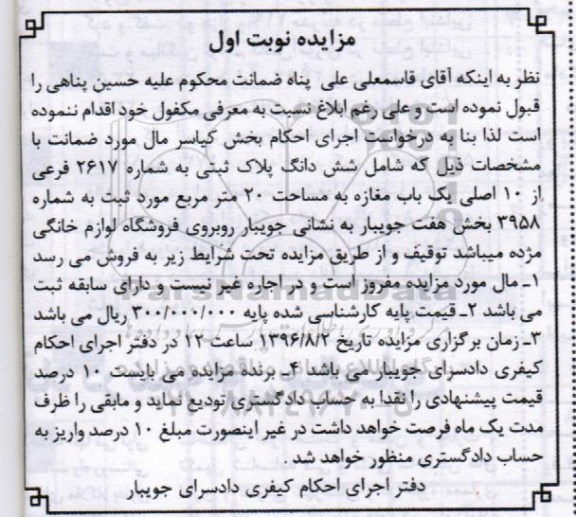 مزایده نوبت اول
نظر به اینکه آقای قاسمعلی علی پناه ضمانت محکوم علیه حسین پناهی را
قبول نموده است و علی رغم ابلاغ نسبت به معرفی مکفول خود اقدام ننموده
است لذا بنا به درخواست اجرای احکام بخش کیاسر مال مورد ضمانت با
مشخصات ذیل که شامل شش دانگ پلاک ثبتی به شماره ۲۶۱۷ فرعی
از ۱۰ اصلی یک باب مغازه به مساحت ۲۰ متر مربع مورد ثبت به شماره
۳۹۵۸ بخش هفت جویبار به نشانی جویبار روبروی فروشگاه لوازم خانگی
مژده میباشد توقیف و از طریق مزایده تحت شرایط زیر به فروش می رسد
۱ـ مال مورد مزایده مفروز است و در اجاره غیر نیست و دارای سابقه ثبت
می باشد ۲ـ قیمت پایه کارشناسی شده پایه ۳۰۰/۰۰۰/۰۰۰ ریال می باشد
۳ـ زمان برگزاری مزایده تاریخ ۱۳۹۶/۸/۲ ساعت ۱۲ در دفتر اجرای احکام
کیفری دادسرای جویبار می باشد ۴ـ برنده مزایده می بایست ۱۰ درصد
قیمت پیشنهادی را نقدا به حساب دادگستری تودیع نماید و مابقی را ظرف
مدت یک ماه فرصت خواهد داشت در غیر اینصورت مبلغ ۱۰ درصد واریز به
حساب دادگستری منظور خواهد شد .
دفتر اجرای احکام کیفری دادسرای جویبار
ParsNamadData